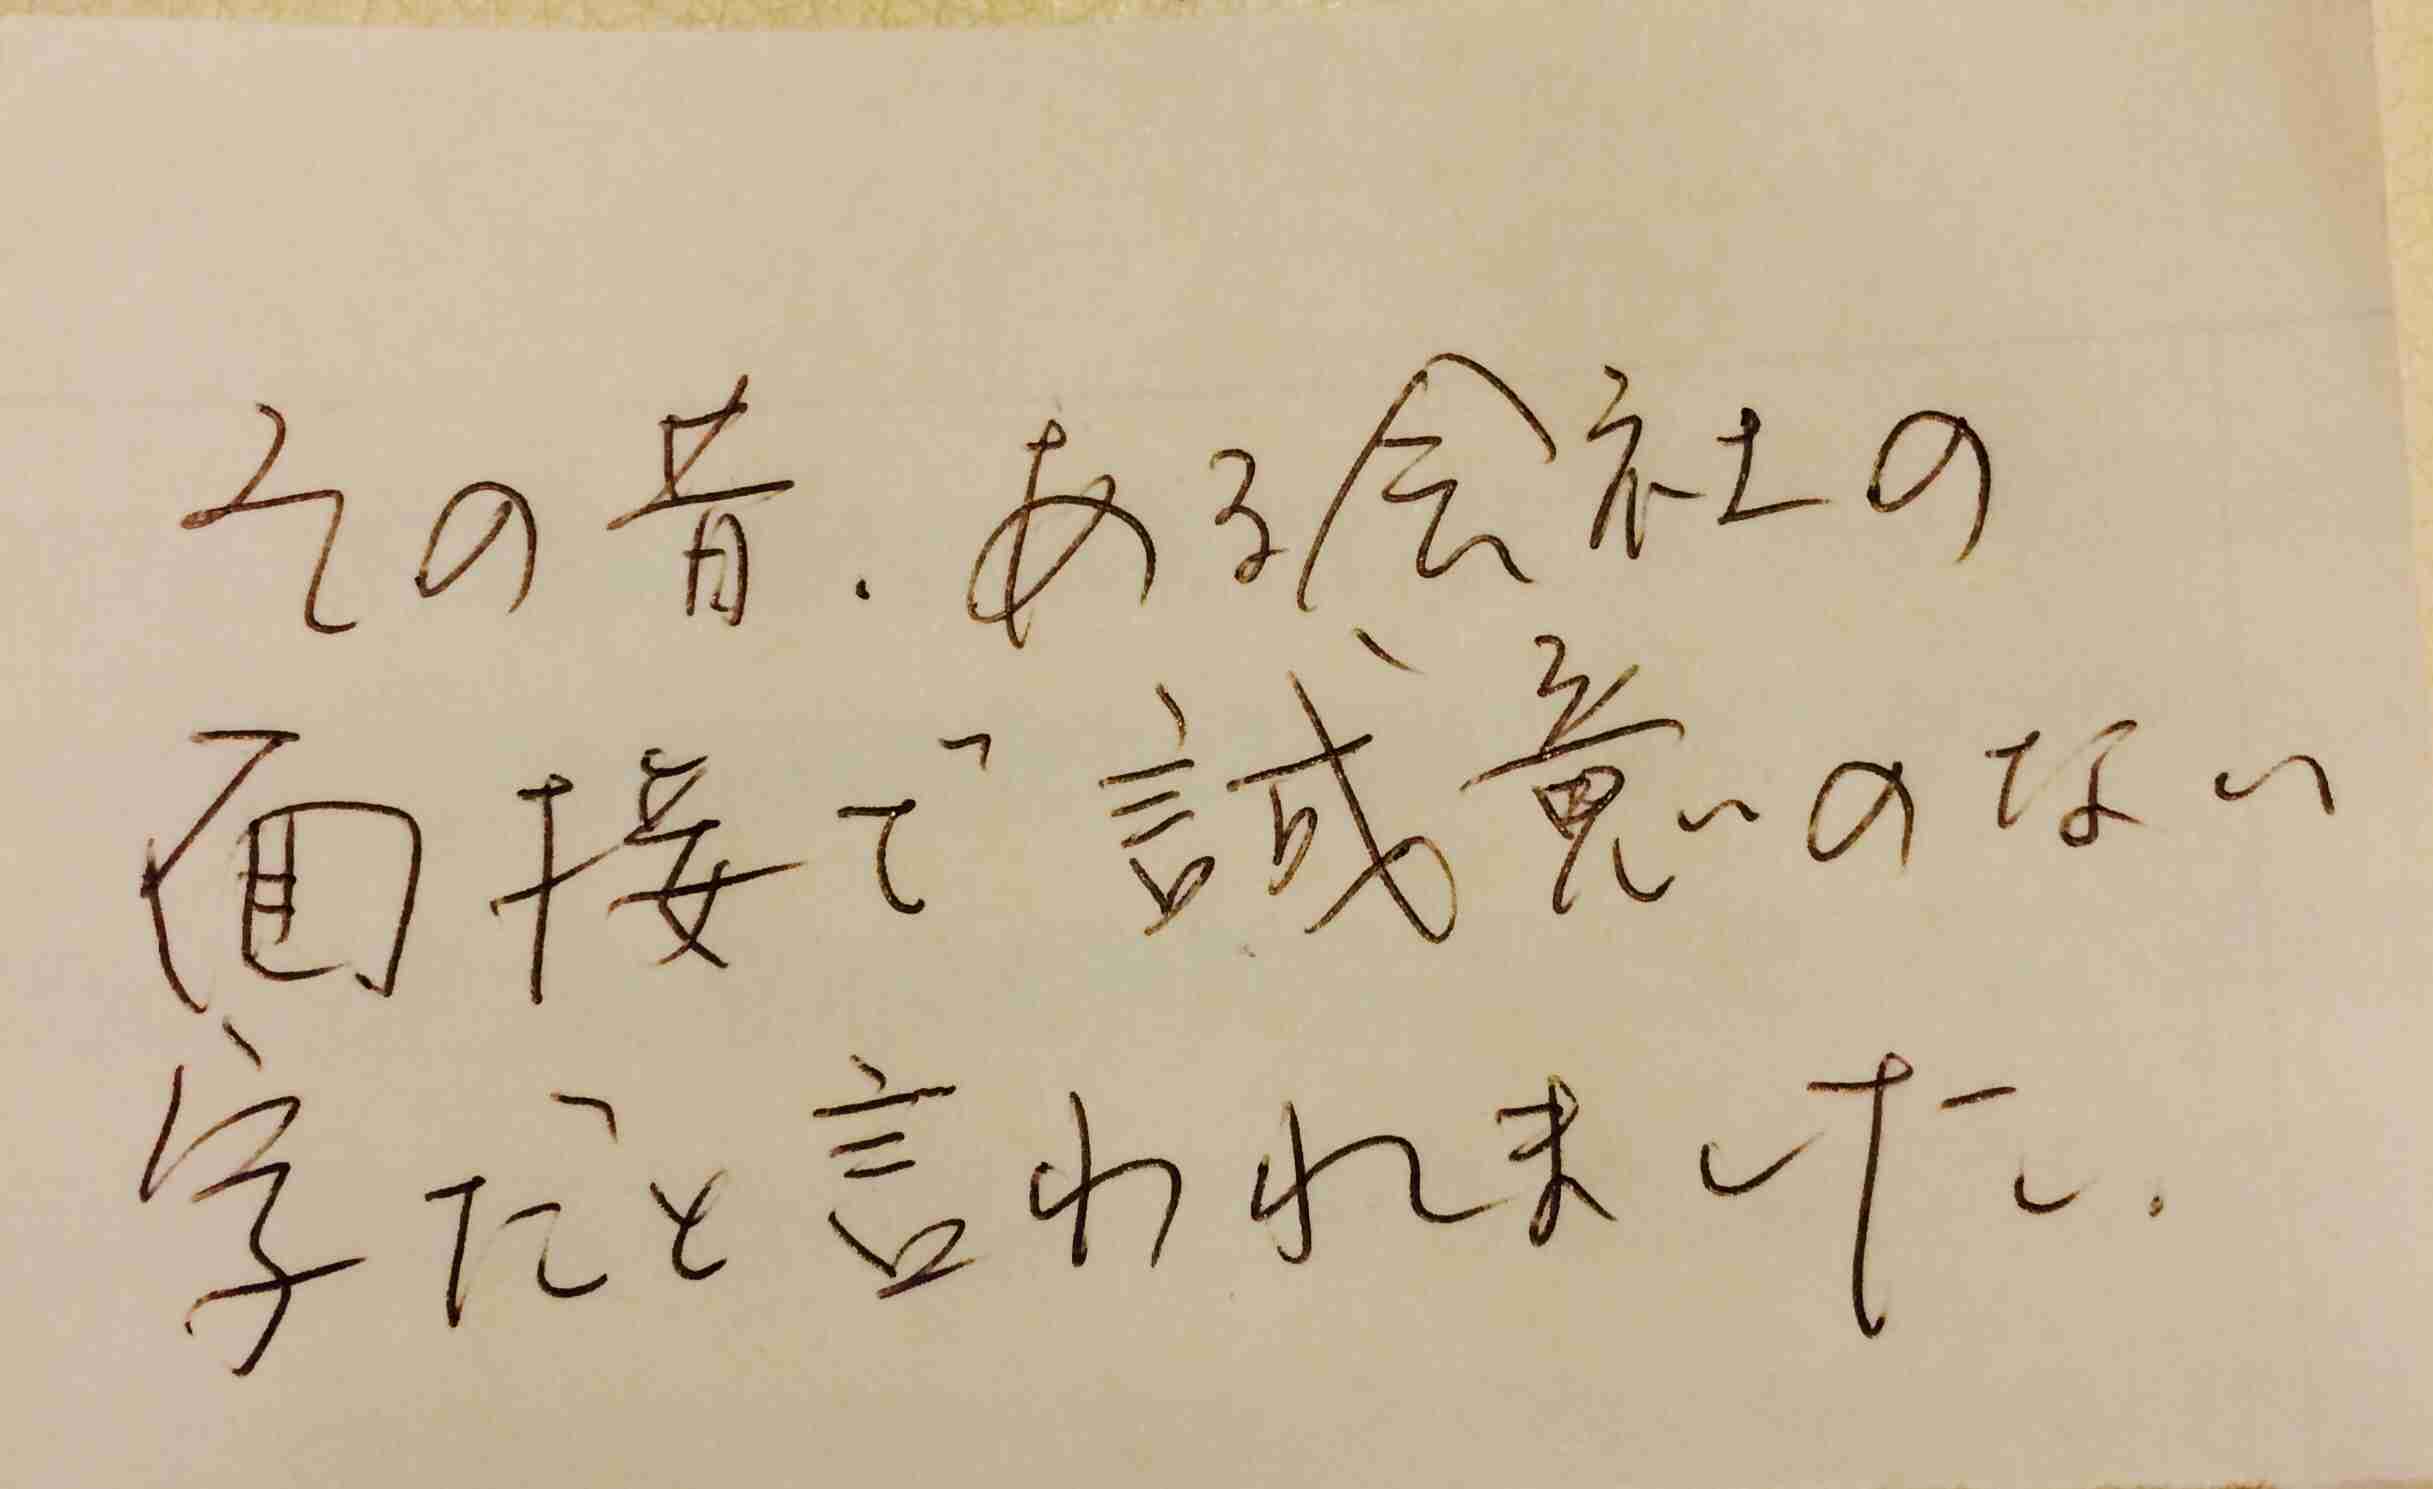 その昔.ある会社の
面接で誠意のない
字だと言われました.